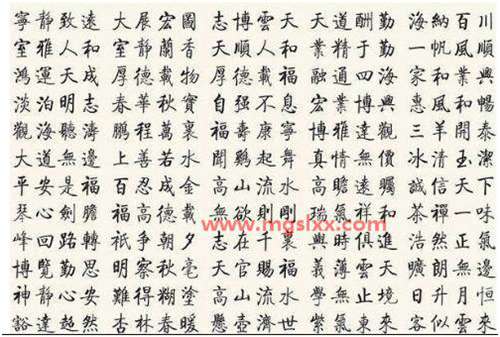 寧靜致遠 大展宏圖 志博雲天 天道酬勤 海納百川
室雅人和 室靜蘭香 大順人和 業精于勤 一帆風順
鴻運天成 厚德載物 厚德載福 融通四海 家和業興
淡泊明志 春華秋實 自强不息 宏業博興 惠風和暢
觀海聽濤 鵬程萬裏 福壽康寧 博雅達觀 三羊開泰
大道無邊 上善若水 聞鷄起舞 真情無價 冰清玉潔
平安是福 百忍成金 高山流水 高瞻遠矚 誠信天下
琴心劍膽 福高德載 無欲則剛 瑞氣祥和 茶禪一味
www.mgslxx.com
峰回路轉 祇爭朝夕 志在萬裏 與時俱進 浩然正氣
博覽勤思 明察秋毫 天官賜福 義薄雲天 曠朗無邊
神靜心安 難得糊塗 高山流水 學無止境 日升月恒
豁達超然 杏林春暖 懸壺濟世 紫氣東來 客似雲來